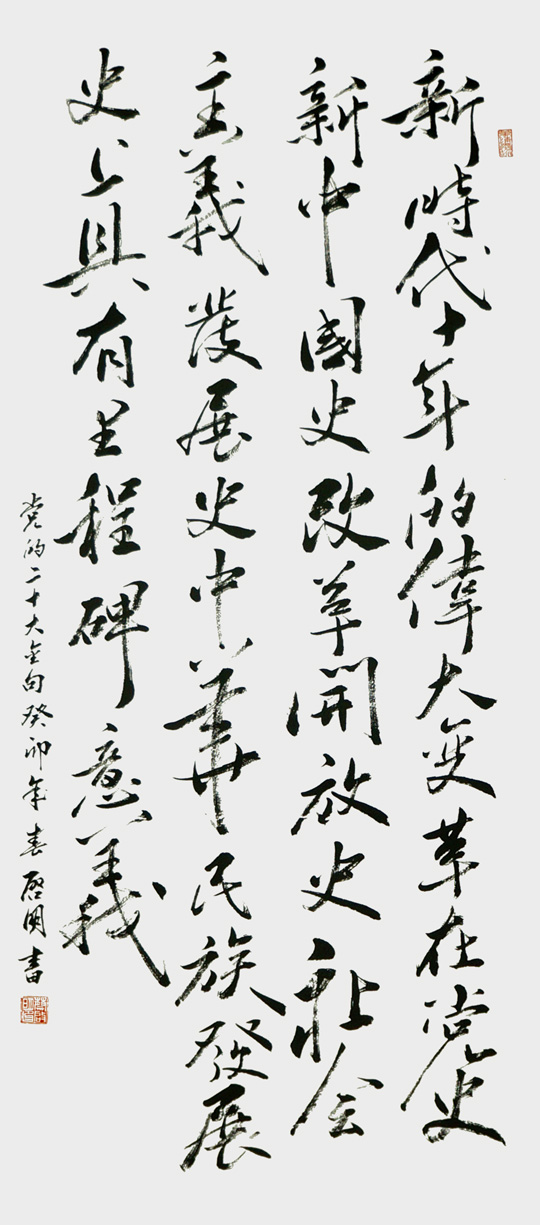 新時代十年的偉大變革在党史
新中國史改革開放史社会
主義發展史中華民族發展
史上具有里程碑意義
党的二十大金句癸卯年春啓国書